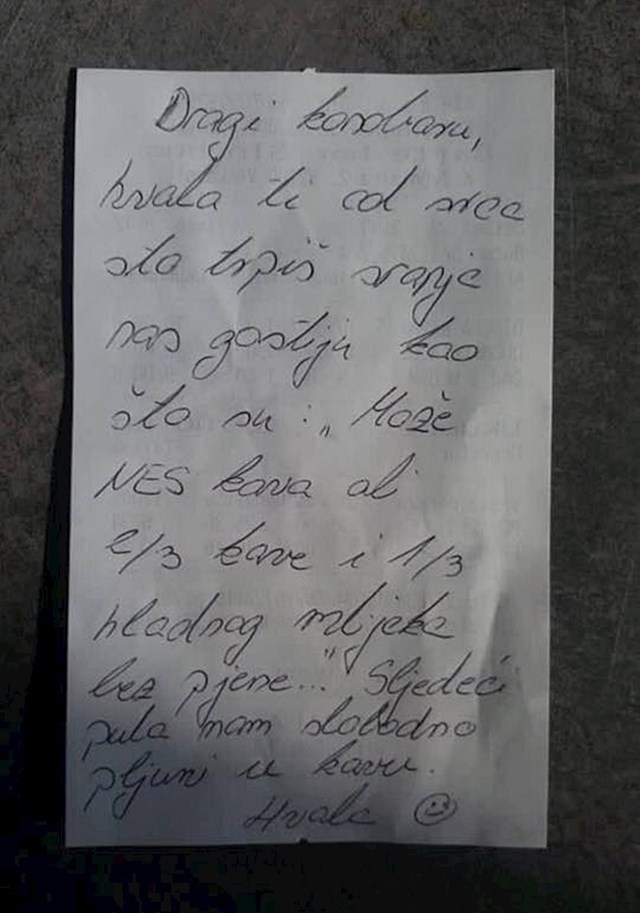 Dragi konobaru,
hvala ti od srca
sto trpiš sranje
nas gostiju kao
što su : „ Može
NES kava al
2/3 kave i 1/3
hladnog mlijeka
bez pjene..." Sljedeći
puta nam slobodno
pljuni u kavu.
Hvala ☺